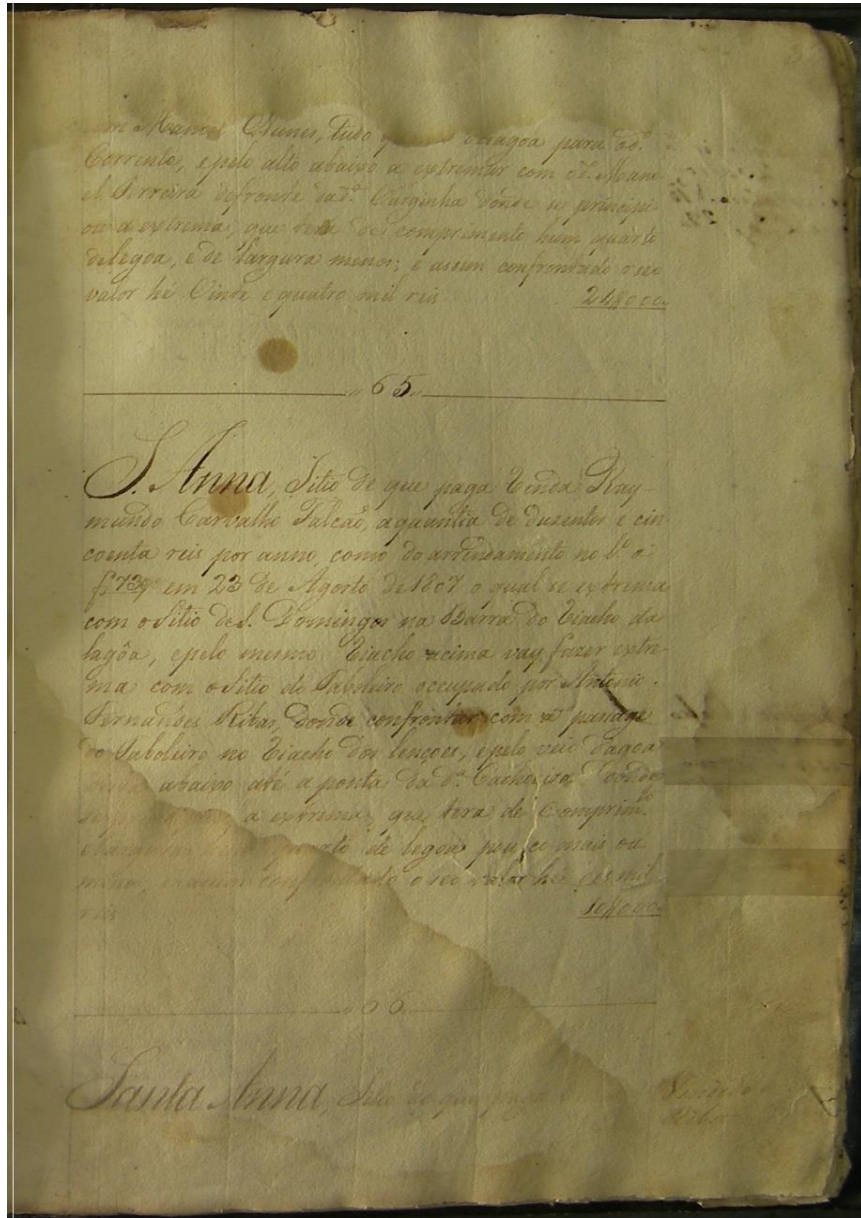 Manoel Nunes, tudo dagoa para od.º
Corrente, epelo alto abaixo a extremar com od.º Mano
el Ferreira defronte dad.ª Varginha donde se principi
ou a extrema, que terá de comprimento hum quarto
delegoa, e de largura menos; e assim confrontado o seo
valor hé Vinte e quatro mil reis 24$000
65
S. Anna, Sitio de que paga renda Ray-
mundo Carvalho Falcaõ, aquantia de duzentos e cin
coenta reis por anno, como do arrendamento no l.º
f 739 em 23 de Agosto de 1807 o qual se extrema
com o Sitio de S. Domingos na Barra do Riacho da
lagôa, epelo mesmo Riacho acima vay fazer extre-
ma com o Sitio do Taboleiro occupado por Antonio
Fernandes Ribas, donde confrontar com a pasage
do Taboleiro no Riacho dos lençoes, epelo veio dagoa
abaixo até a ponta da d.ª Cachoeira donde
a extrema, que tera de comprim.to
quarto de legoa pouco mais ou
menos, e assim confrontado o seo valor he dez mil
reis 10$000
66
Santa Anna, Sitio de que paga